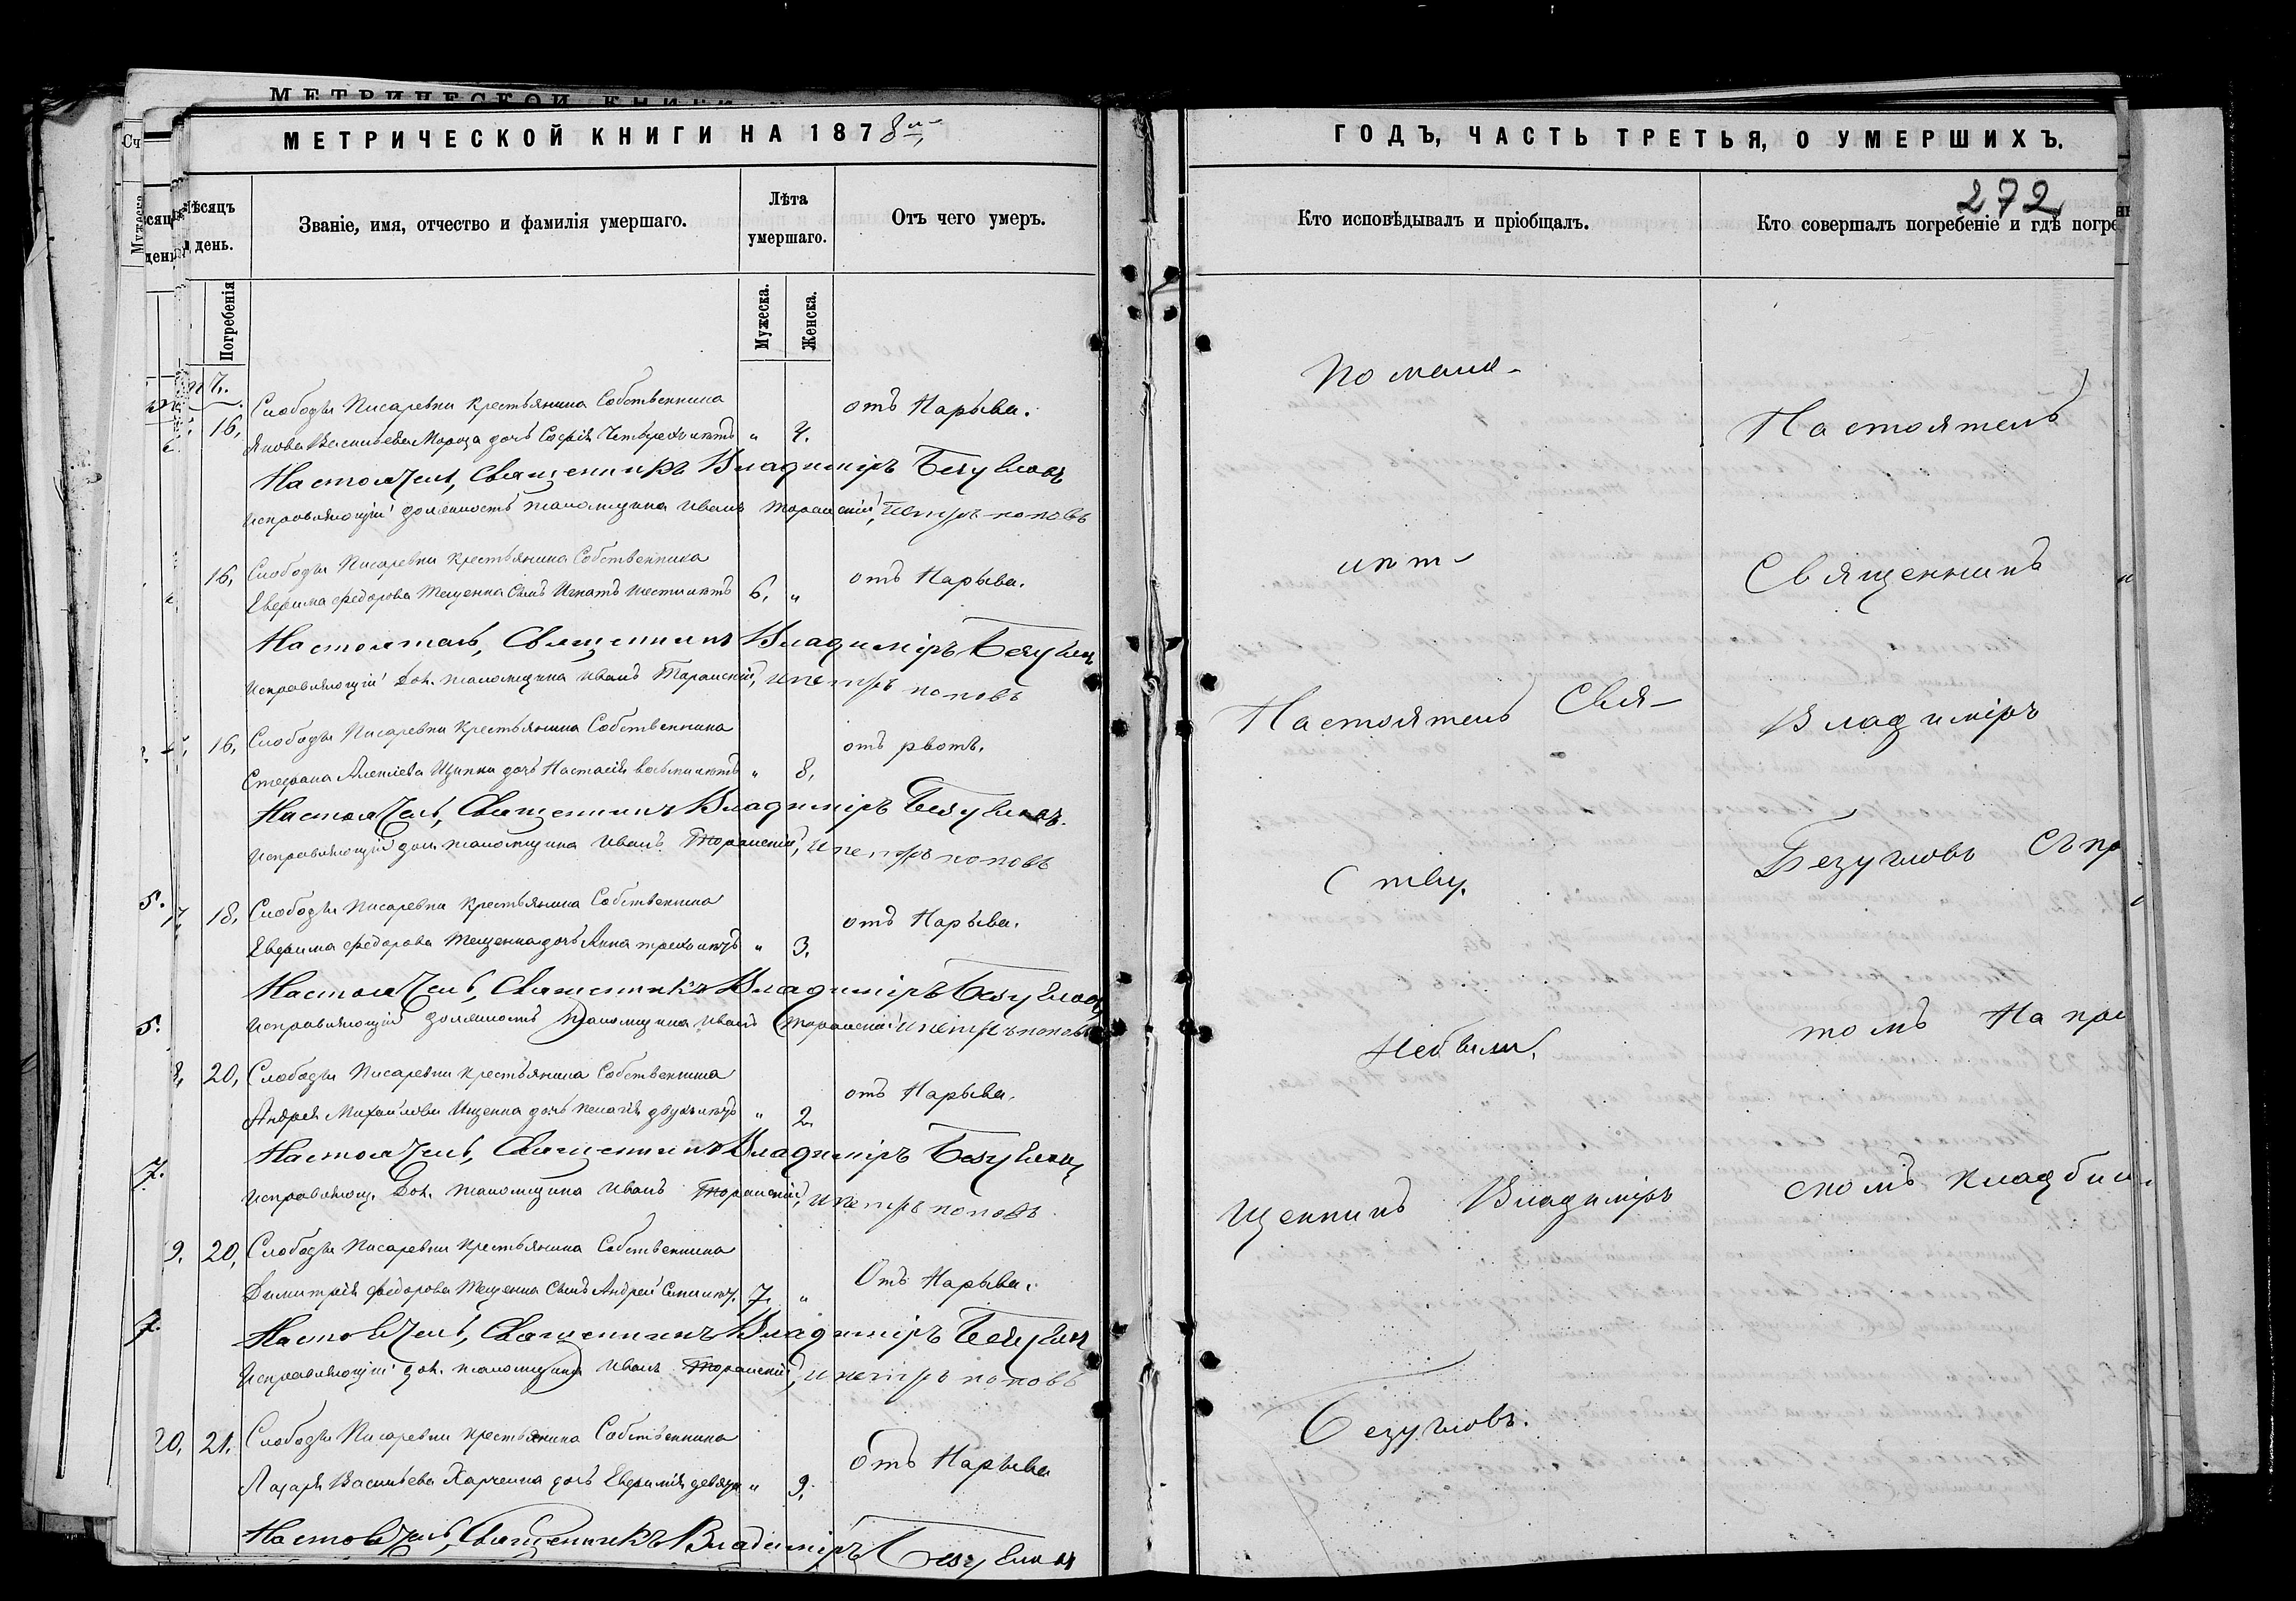 МЕТРИЧЕСКОЙ КНИГИ НА 1878й
Мѣсяцъ
и день.
Званіе, имя, отчество и фамилія умершаго.
Лѣта
умершаго.
Отъ чего умеръ.
Погребенія
Мужеска.
Женска.
Слободы Писаревки крестьянина Собственника
отъ Нарыва.
16, Якова Васильева Мороза дочь Софія Четырехъ лѣтъ „ 4.
Настоятель, Священникъ Владиміръ Безугловъ
Исправляющій должность псаломщика Иванъ Торанскій, Петръ Поповъ
16, Слободы Писаревки крестьянина Собственника
отъ Нарыва.
Федорова Тещенка Сынъ Игнатъ шести лѣтъ 6, „
Настоятель, Священникъ Владиміръ Безугловъ
Исправляющій Дол. псаломщика Иванъ Торанскій, и Петръ Поповъ
16, Слободы Писаревки крестьянина Собственника
отъ рвоты.
Стефана дочь Настасія восьми лѣтъ „ 8,
Настоятель, Священникъ Владиміръ Безугловъ.
Исправляющій дол. псаломщика Иванъ Торанскій, и Петръ Поповъ
18, Слободы Писаревки крестьянина Собственника
отъ Нарыва.
Федорова Тещенка дочь Анна трехъ лѣтъ „ 3.
Настоятель, Священникъ Владиміръ Безугловъ
Исправляющій должность псаломщика Иванъ Торанскій и Петръ Поповъ
8, 20, Слободы Писаревки крестьянина Собственника
отъ Нарыва.
Андрея Михайлова Ищенка дочь Пелагія двухъ лѣтъ „ 2.
Настоятель, Священникъ Владиміръ Безугловъ
Исправляющ. Дол. псаломщика Иванъ Торанскій, и Петръ Поповъ
9. 20, Слободы Писаревки крестьянина Собственника
Отъ Нарыва.
Димитрія Федорова Тещенка Сынъ Андрей Семи лѣт. 7. „
Настоятель, Священникъ Владиміръ Безугловъ
Исправляющій дол. псаломщика Иванъ Торанскій, и Петръ Поповъ
20, 21. Слободы Писаревки крестьянина Собственника
Отъ Нарыва
Лазаря Васильева Харченка дочь Евфимія девяти „ 9.
Настоятель, Священникъ Владиміръ Безугловъ
ГОДЪ, ЧАСТЬ ТРЕТЬЯ, О УМЕРШИХЪ.
272
Кто исповѣдывалъ и пріобщалъ.
По мало-
лѣт-
ству.
Небыли.
Настоятель Свя-
щенникъ Владиміръ
Безугловъ.
Кто совершалъ погребеніе и гдѣ погре
Настоятель
Священникъ
Владиміръ
Безугловъ Съ пр
томъ На при
скомъ кладбищ